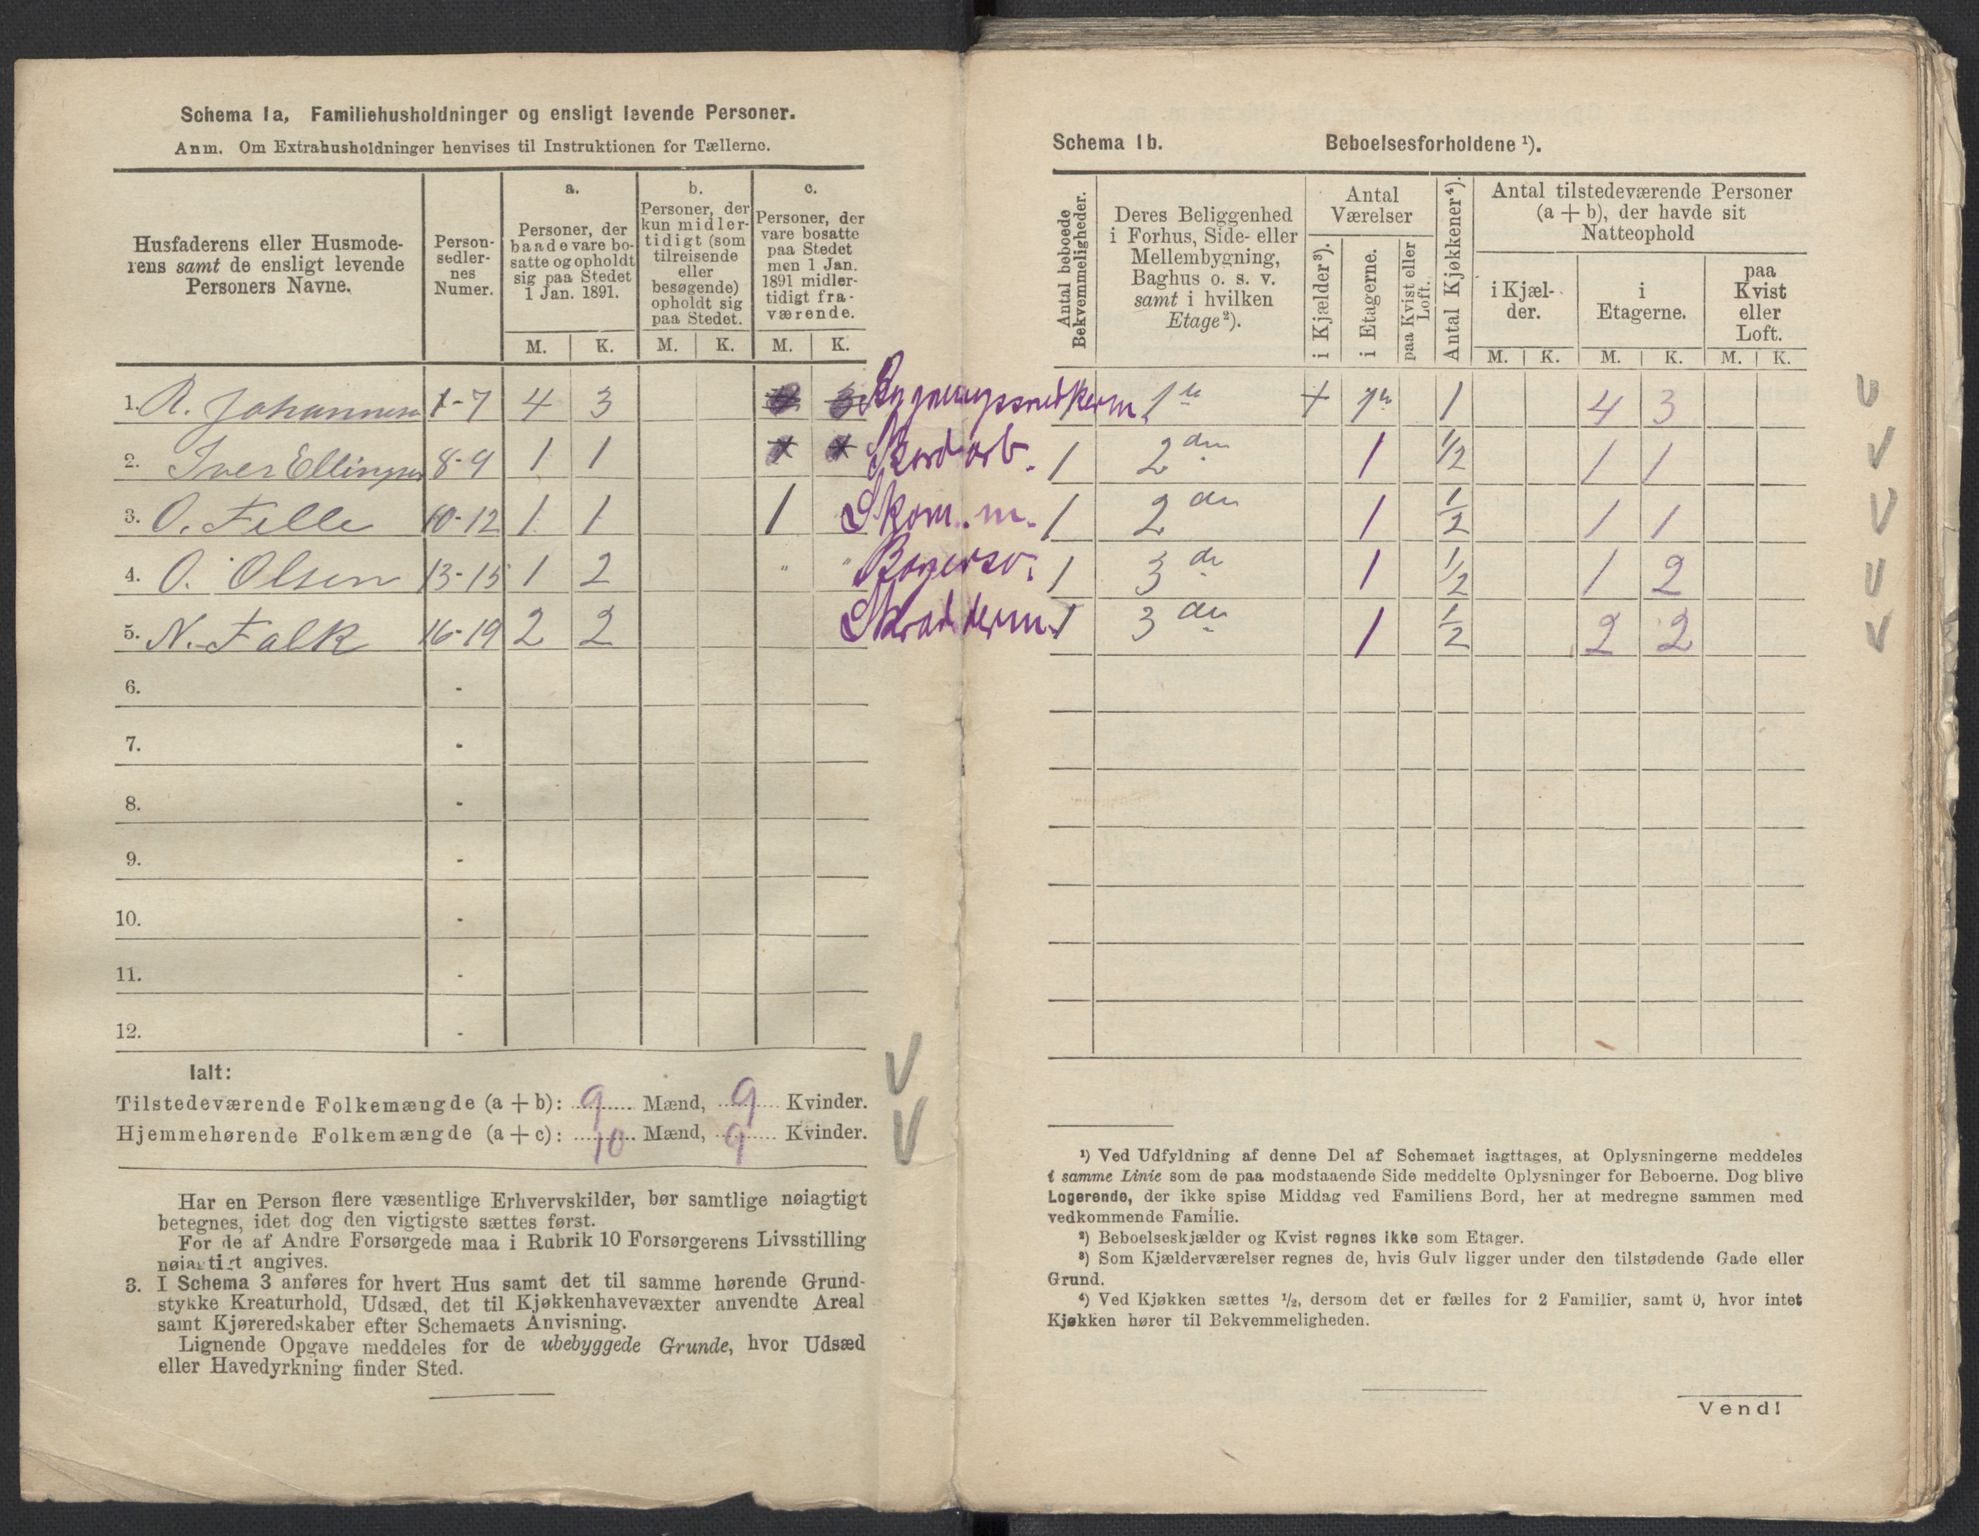 Schema 1a, Familiehusholdninger og ensligt levende Personer.
Anm. Om Extrahusholdninger henvises til Instruktionen for Tællerne.
Husfaderens eller Husmoderens samt de ensligt levende Personers Navne.
Personsedlernes Numer.
a. Personer, der baade vare bosatte og opholdt sig paa Stedet 1 Jan. 1891.
b. Personer, der kun midlertidigt (som tilreisende eller besøgende) opholdt sig paa Stedet.
c. Personer, der vare bosatte paa Stedet men 1 Jan. 1891 midlertidigt fraværende.
M. K. M. K. M. K.
1. R. Johannesen 1-7 4 3 Bygningssnedkerm.
2. Iver Ellingsen 8-9 1 1 Skordarb.
3. O. Felle 10-12 1 1 1 Skom.m.
4. O. Olsen 13-15 1 2 " "
5. N. Falk 16-19 2 2 Skrædderm.
6. -
7. -
8. -
9. -
10. -
11. -
12. -
Ialt:
Tilstedeværende Folkemængde (a + b): 9 Mænd, 9 Kvinder.
Hjemmehørende Folkemængde (a + c): 10 Mænd, 9 Kvinder.
Har en Person flere væsentlige Erhvervskilder, bør samtlige nøiagtigt
betegnes, idet dog den vigtigste sættes først.
For de af Andre Forsørgede maa i Rubrik 10 Forsørgerens Livsstilling
nøiagtigt angives.
3. I Schema 3 anføres for hvert Hus samt det til samme hørende Grund-
stykke Kreaturhold, Udsæd, det til Kjøkkenhavevæxter anvendte Areal
samt Kjøreredskaber efter Schemaets Anvisning.
Lignende Opgave meddeles for de ubebyggede Grunde, hvor Udsæd
eller Havedyrkning finder Sted.
Schema 1b. Beboelsesforholdene ¹).
Antal beboede Bekvemmeligheder.
Deres Beliggenhed i Forhus, Side- eller Mellembygning, Baghus o. s. v. samt i hvilken Etage²).
Antal Værelser
i Kjælder³).
i Etagerne.
paa Kvist eller Loft.
Antal Kjøkkener⁴).
Antal tilstedeværende Personer (a + b), der havde sit Natteophold
i Kjælder.
i Etagerne.
paa Kvist eller Loft.
M. K. M. K. M. K.
1 1 4 3
1 2den 1 1/2 1 1
1 2den 1 1/2 1 1
1 3de 1 1/2 1 2
1 3den 1 1/2 2 2
¹) Ved Udfyldning af denne Del af Schemaet iagttages, at Oplysningerne meddeles
i samme Linie som de paa modstaaende Side meddelte Oplysninger for Beboerne. Dog blive
Logerende, der ikke spise Middag ved Familiens Bord, her at medregne sammen med
vedkommende Familie.
²) Beboelseskjælder og Kvist regnes ikke som Etager.
³) Som Kjælderværelser regnes de, hvis Gulv ligger under den tilstødende Gade eller
Grund.
⁴) Ved Kjøkken sættes ½, dersom det er fælles for 2 Familier, samt 0, hvor intet
Kjøkken hører til Bekvemmeligheden.
Vend!